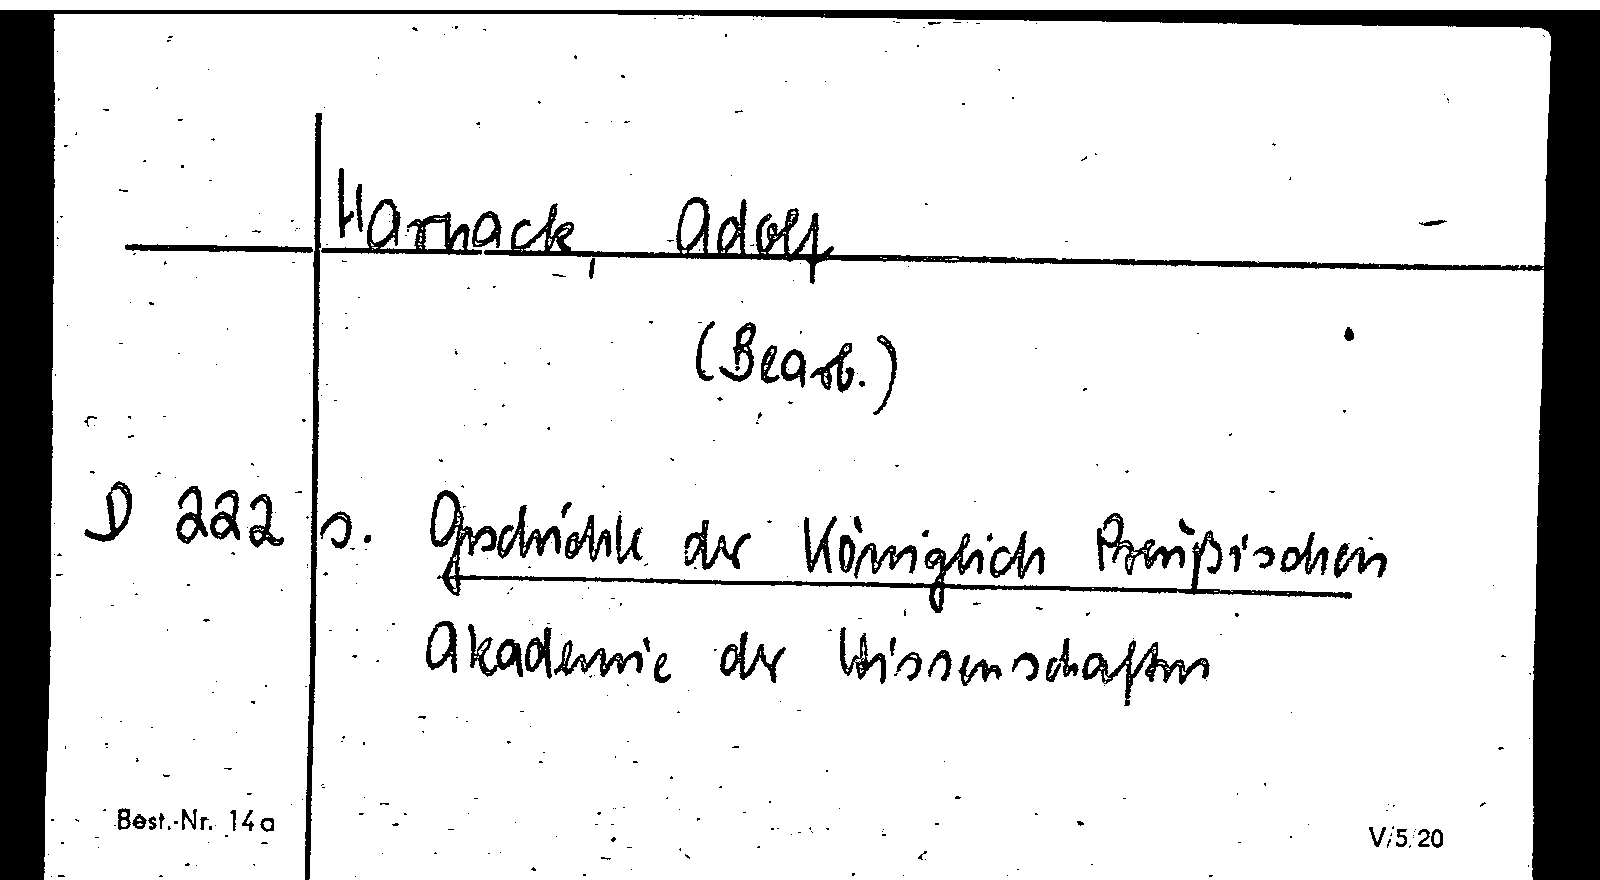 Harnack, Adolf
(Bearb.)
D 222 s. Geschichte der Königlich Preußischen
Akademie der Wissenschaften
Best.-Nr. 14a V/5/20